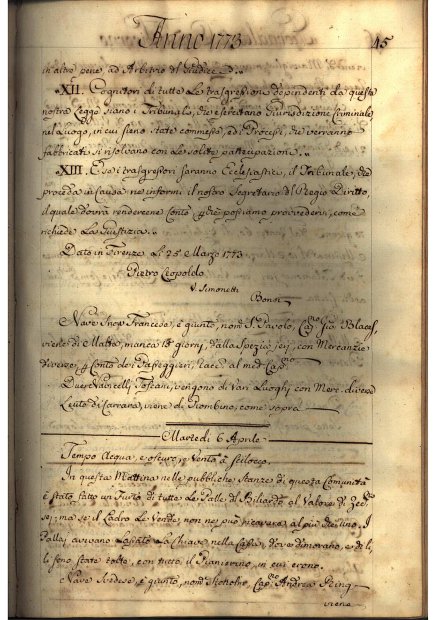 Anno 1773
45
in altre pene ad Arbitrio del Giudice
XII. Cognitori di tutte Le trasgressioni dependenti da questa
nostra Legge siano i Tribunali, che esercitano Giurisdizione Criminale
nel Luogo, in cui sieno state commesse, ed i Processi, che verranno
fabbricati si risolvano con Le solite partecipazioni
XIII. E se i trasgressori saranno Ecclesiastici, il Tribunale, che
proceda in Causa ne informi il nostro Segretario del Regio Diritto,
il quale dovrà rendercene Conto possiamo provvedervi, come
richiede La Giustizia
Dato in Firenze Li 25 Marzo 1773
Pietro Leopoldo
V. Simonetti
Nave Snow Francese, è giunto, S. Pavolo, Gio:
viene di Malta, manca giorni, dalla Spezia con Mercanzie
diverse, Conto dei Passeggieri, al med
Due Navicelli Toscani, vengono di Vari Luoghi con Merc. diverse
Leuto di Carrara, viene di Piombino, come sopra
Martedì 6 Aprile
Tempo Acqua, e oscuro, e Vento a Scilocco
In questa Mattina nelle pubbliche Stanze di questa Comunità
è stato fatto un Furto di tutte Le Palle del Biliardo al Valore di
ma se il Ladro Le Vende, non ne può ricavare al più che uno. I
Pallai avevano Lasciato La Chiave nella dove dimorano, e di lì
li sono state tolte, con tutto il Panierino, in cui erono.
Nave Svedese, è giunto, Andrea
viene